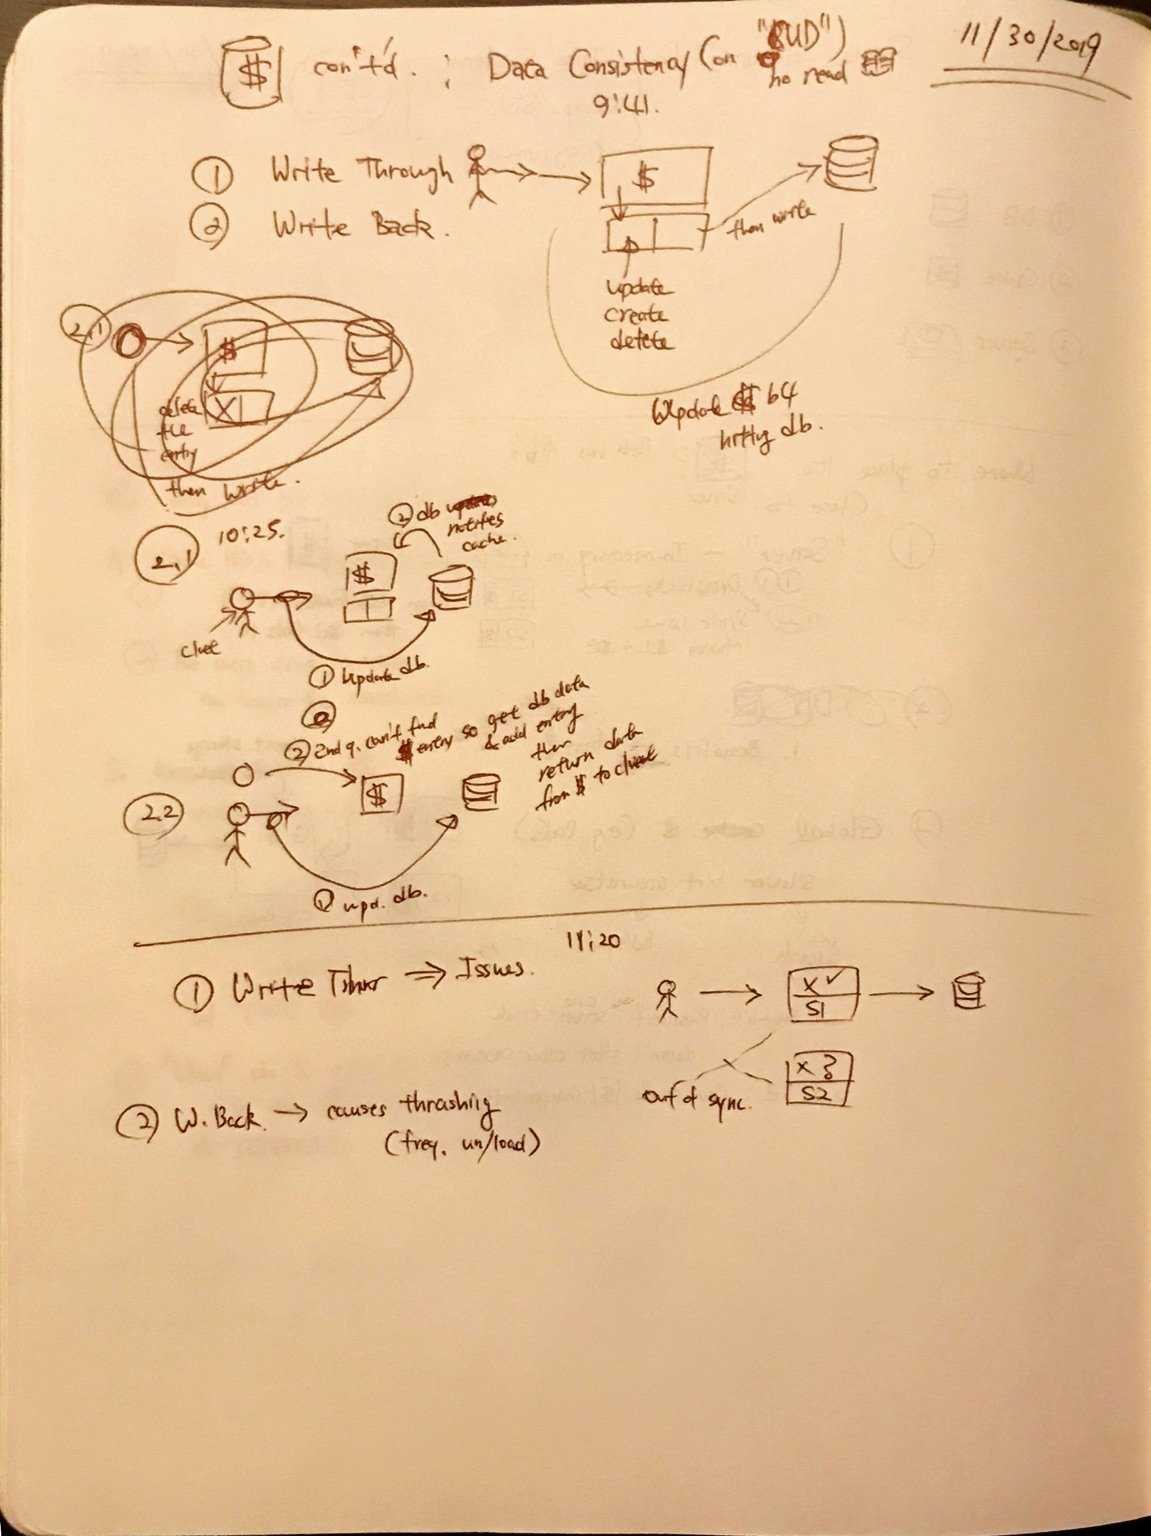 11/30/2019
$ con't'd. : Data Consistency (on "CUD")
no read
9:41.
① Write Through
② Write Back.
$
then write
update
create
delete
Update $ b4
hitting db.
2.1
$
X
delete
the
entry
then write.
10:25.
2.1
② db
notifies
cache.
$
client
① Update db.
② 2nd q. can't find
$ entry so get db data
& add entry
then
return data
from $ to client
$
2.2
① upd. db.
11:20
① Write Thru ⇒ Issues.
X ✓
S1
X 3
S2
out of sync.
② W. Back → causes thrashing
(freq. un/load)